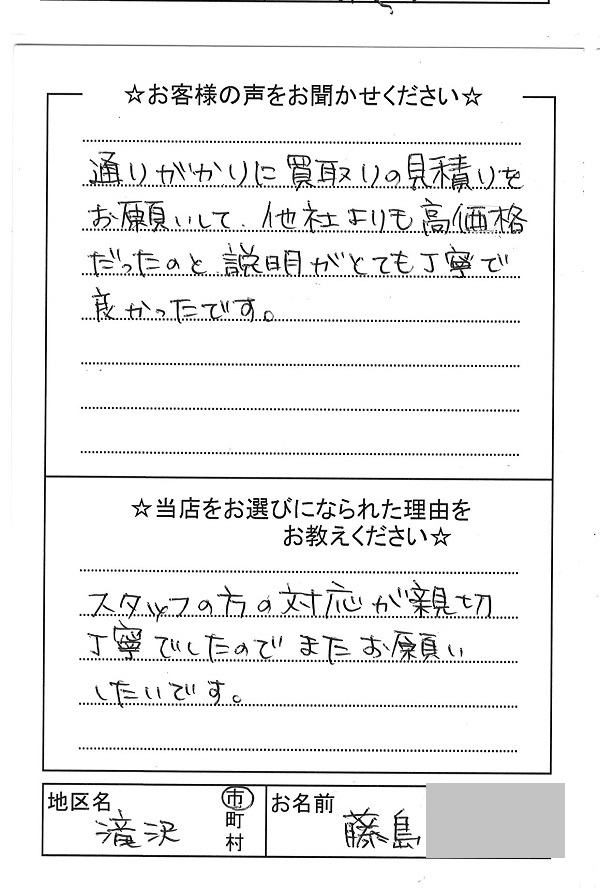 ☆お客様の声をお聞かせください☆
通りがかりに買取りの見積りを
お願いして、他社よりも高価格
だったのと説明がとても丁寧で
良かったです。
☆当店をお選びになられた理由を
お教えください☆
スタッフの方の対応が親切
丁寧でしたのでまたお願い
したいです。
地区名 滝沢 市
町
村
お名前 藤島